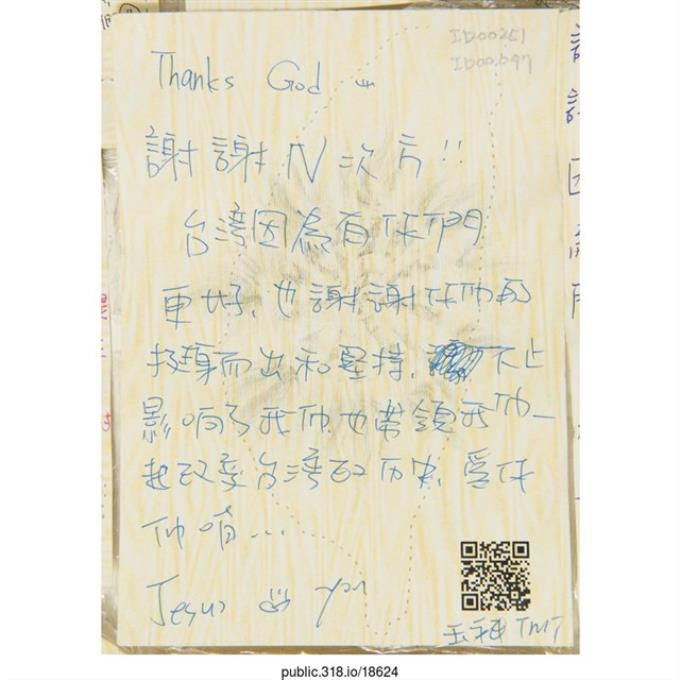 ID00251
ID00697
Thanks God
謝謝N次方!!
台灣因為有你們
更好,也謝謝你们的
挺身而出和堅持,不止
影响了我们,也带領我们一
起改變台湾的历史,愛你
们唷...
Jesus you
玉禎 TMT
public.318.io/18624